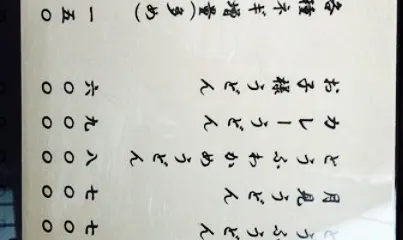 とうふうどん 七〇〇
月見うどん 七〇〇
とうふわかめうどん 八〇〇
カレーうどん 九〇〇
お子様うどん 六〇〇
各種ネギ増量(多め) 一五〇